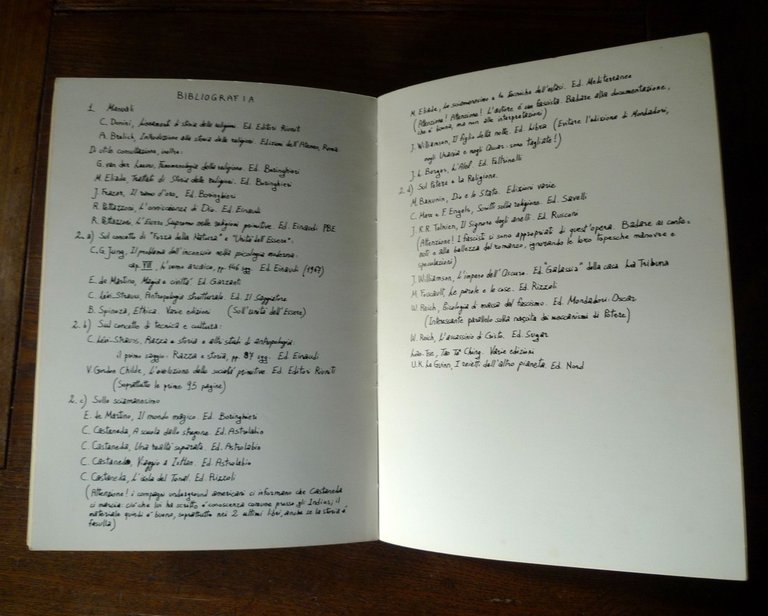 BIBLIOGRAFIA
1. Manuali
C. Donini, Lineamenti di storia delle religioni Ed. Editori Riuniti
A. Brelich, Introduzione alla storia delle religioni. Edizioni dell'Ateneo, Roma
Di utile consultazione, inoltre:
G. van der Leeuw, Fenomenologia della religione Ed. Boringhieri
M. Eliade, Trattato di Storia delle religioni. Ed. Boringhieri
J. Frazer, Il ramo d'oro. Ed. Boringhieri
R. Pettazzoni, L'onniscienza di Dio. Ed. Einaudi
R. Pettazzoni, L'Essere Supremo nelle religioni primitive Ed. Einaudi PBE
2. a) Sul concetto di "Forza della Natura" e "Unità dell'Essere":
C. G. Jung, Il problema dell'inconscio nella psicologia moderna:
cap. VII, L'uomo arcaico, pp. 146 sgg. Ed. Einaudi (1967)
E. de Martino, Magia e civiltà. Ed. Garzanti
C. Lévi-Strauss, Antropologia strutturale. Ed. Il Saggiatore
B. Spinoza, Ethica. Varie edizioni (Sull'Unità dell'Essere)
2. b) Sul concetto di tecnica e cultura:
C. Lévi-Strauss, Razza e storia e altri studi di antropologia:
il primo saggio: Razza e storia, pp. 97 sgg. Ed. Einaudi
V. Gordon Childe, L'evoluzione delle società primitive. Ed. Editori Riuniti
(Soprattutto le prime 95 pagine)
2. c) Sullo sciamanesimo
E. de Martino, Il mondo magico. Ed. Boringhieri
C. Castaneda, A scuola dallo stregone. Ed. Astrolabio
C. Castaneda, Una realtà separata. Ed. Astrolabio
C. Castaneda, Viaggio a Ixtlan. Ed. Astrolabio
C. Castaneda, L'isola del Tonal. Ed. Rizzoli
(Attenzione! i compagni underground americani ci informano che Castaneda
ci marcia: ciò che lui ha scritto è conoscenza comune presso gli Indios; il
materiale quindi è buono, soprattutto nei 2 ultimi libri, anche se la storia è
fasulla)
M. Eliade, Lo sciamanesimo e le tecniche dell'estasi. Ed. Mediterranee
(Attenzione! Attenzione! L'autore è un fascista. Badare alla documentazione,
che è buona, ma non alle interpretazioni)
J. Williamson, Il figlio della notte. Ed. Libra (Evitare l'edizione di Mondadori,
negli Urania e negli Oscar: sono tagliate!)
J. L. Borges, L'Alef. Ed. Feltrinelli
2. d) Sul Potere e la Religione.
M. Bakunin, Dio e lo Stato. Edizioni varie
C. Marx e F. Engels, Scritti sulla religione. Ed. Savelli
J. R. R. Tolkien, Il Signore degli anelli. Ed. Rusconi
(Attenzione! I fascisti si sono appropriati di quest'opera. Badare ai conte-
nuti e alla bellezza del romanzo, ignorando le loro topesche manovre e
speculazioni)
J. Williamson, L'impero dell'Oscuro. Ed. "Galassia" della casa La Tribuna
M. Foucault, Le parole e le cose. Ed. Rizzoli
W. Reich, Psicologia di massa del fascismo. Ed. Mondadori: Oscar
(Interessante parallelo sulla nascita dei meccanismi di Potere)
W. Reich, L'assassinio di Cristo. Ed. Sugar
Lao-Tse, Tao Tê Ching. Varie edizioni
U. K. Le Guinn, I reietti dell'altro pianeta. Ed. Nord